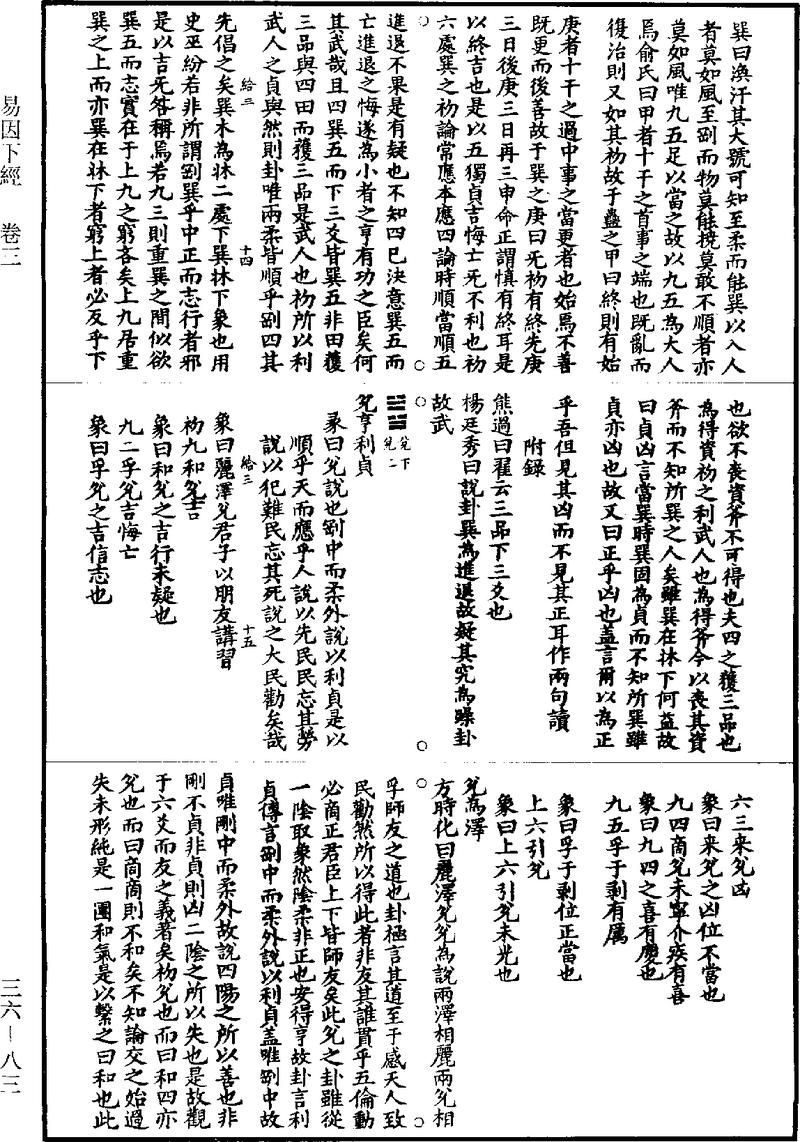 易因下經　卷三
三六—八三
巽曰渙汗其大號可知至柔而能巽以入人
者莫如風至剛而物莫能撓莫敢不順者亦
莫如風唯九五足以當之故以九五為大人
焉俞氏曰甲者十干之首事之端也既亂而
復治則又如其初故于蠱之甲曰終則有始
庚者十干之過中事之當更者也始焉不善
既更而後善故于巽之庚曰无初有終先庚
三日後庚三日再三申命正謂慎有終耳是
以終吉也是以五獨貞吉悔亡无不利也初
六處巽之初論常應本應四論時順當順五
進退不果是有疑也不知四已決意巽五而
亡進退之悔遂為小者之亨有功之臣矣何
其武哉且四巽五而下三爻皆巽五非田獲
三品與四田而獲三品是武人也初所以利
武人之貞與然則卦唯兩柔皆順乎剛四其
給三
十四
先倡之矣巽木為牀二處下巽牀下象也用
史巫紛若非所謂剛巽乎中正而志行者邪
是以吉无咎稱焉若九三則重巽之間似欲
巽五而志實在于上九之窮吝矣上九居重
巽之上而亦巽在牀下者窮上者必反乎下
也欲不喪資斧不可得也夫四之獲三品也
為得資初之利武人也為得斧今以喪其資
斧而不知所巽之人矣雖巽在牀下何益故
曰貞凶言當巽時巽固為貞而不知所巽雖
貞亦凶也故又曰正乎凶也蓋言爾以為正
乎吾但見其凶而不見其正耳作兩句讀
附錄
熊過曰翟云三品下三爻也
楊廷秀曰說卦巽為進退故疑其究為躁卦
故武
䷹兌下兌二
兌亨利貞
彖曰兌說也剛中而柔外說以利貞是以
順乎天而應乎人說以先民民忘其勞
說以犯難民忘其死說之大民勸矣哉
給三
十五
象曰麗澤兌君子以朋友講習
初九和兌吉
象曰和兌之吉行未疑也
九二孚兌吉悔亡
象曰孚兌之吉信志也
六三來兌凶
象曰來兌之凶位不當也
九四商兌未寧介疾有喜
象曰九四之喜有慶也
九五孚于剝有厲
象曰孚于剝位正當也
上六引兌
象曰上六引兌未光也
兌為澤
方時化曰麗澤兌兌為說兩澤相麗兩兌相
孚師友之道也卦極言其道至于感天人致
民勸然所以得此者非友其誰貫乎五倫動
必商正君臣上下皆師友矣此兌之卦雖從
一陰取象然陰柔非正也安得亨故卦言利
貞傳言剛中而柔外說以利貞蓋唯剛中故
貞唯剛中而柔外故說四陽之所以善也非
剛不貞非貞則凶二陰之所以失也是故觀
于六爻而友之義著矣初兌也而曰和四亦
兌也而曰商商則不和矣不知論交之始過
失未形純是一團和氣是以繫之曰和也此